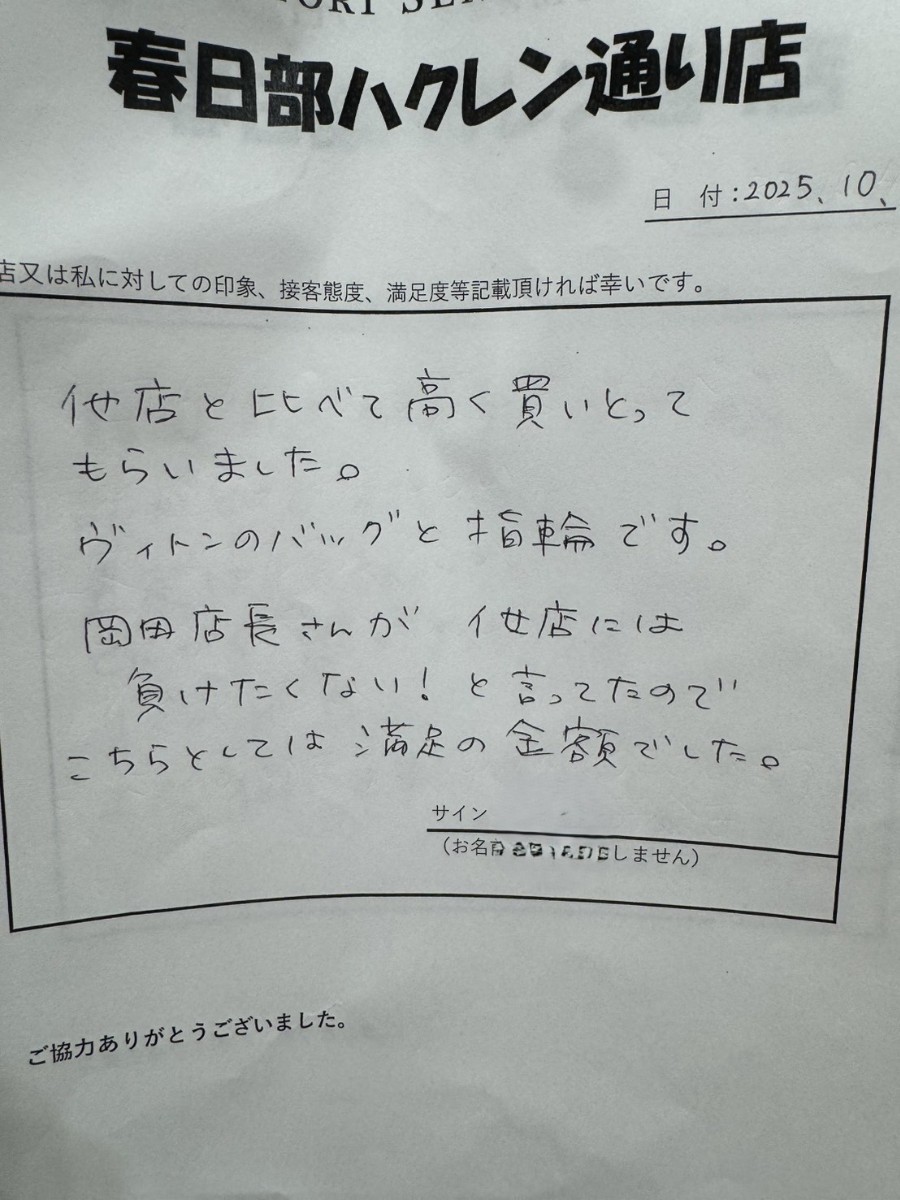 春日部ハクレン通り店
日 付：2025、10、
店又は私に対しての印象、接客態度、満足度等記載頂ければ幸いです。
他店と比べて高く買いとって
もらいました。
ヴィトンのバッグと指輪です。
岡田店長さんが 他店には
負けたくない！と言ってたので
こちらとしては満足の金額でした。
サイン
（お名前しません）
ご協力ありがとうございました。